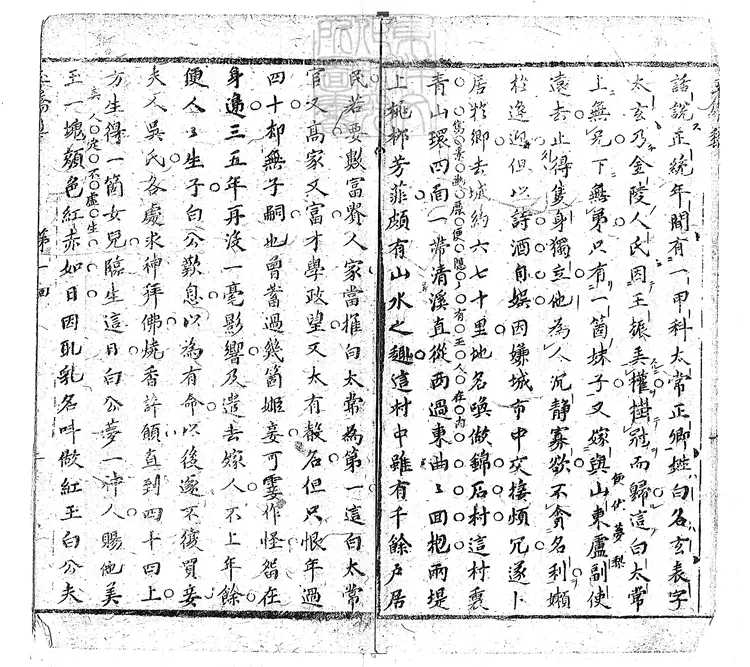 話說正統年間有一甲科太常正卿姓白名玄表字
太玄乃金陵人氏因王振弄權掛冠而歸這白太常
上無兄下無弟只有一箇妹子又嫁與山東盧副使
遠去止得隻身獨立他為人沉静寡欲不貪名利懶
於逢迎但以詩酒自娛因嫌城市中交接煩冗遂卜
居於鄉去城約六七十里地名喚做錦石村這村裏
青山環四面一帶清溪直從西過東曲〻回抱兩堤
上桃柳芳菲頗有山水之趣這村中雖有千餘戶居
民若要數富貴人家當推白太常為第一這白太常
官又高家又富才學政望又太有聲名但只恨年過
四十却無子嗣也曾蓄過幾箇姬妾可霎作怪留在
身邊三五年再沒一毫影響及遣去嫁人不上年餘
便人〻生子白公歎息以為有命以後遂不復買妾
夫人吳氏各處求神拜佛燒香許願直到四十四上
方生得一箇女兒臨生這日白公夢一神人賜他美
玉一塊顏色紅赤如日因取乳名叫做紅玉白公夫
第一回